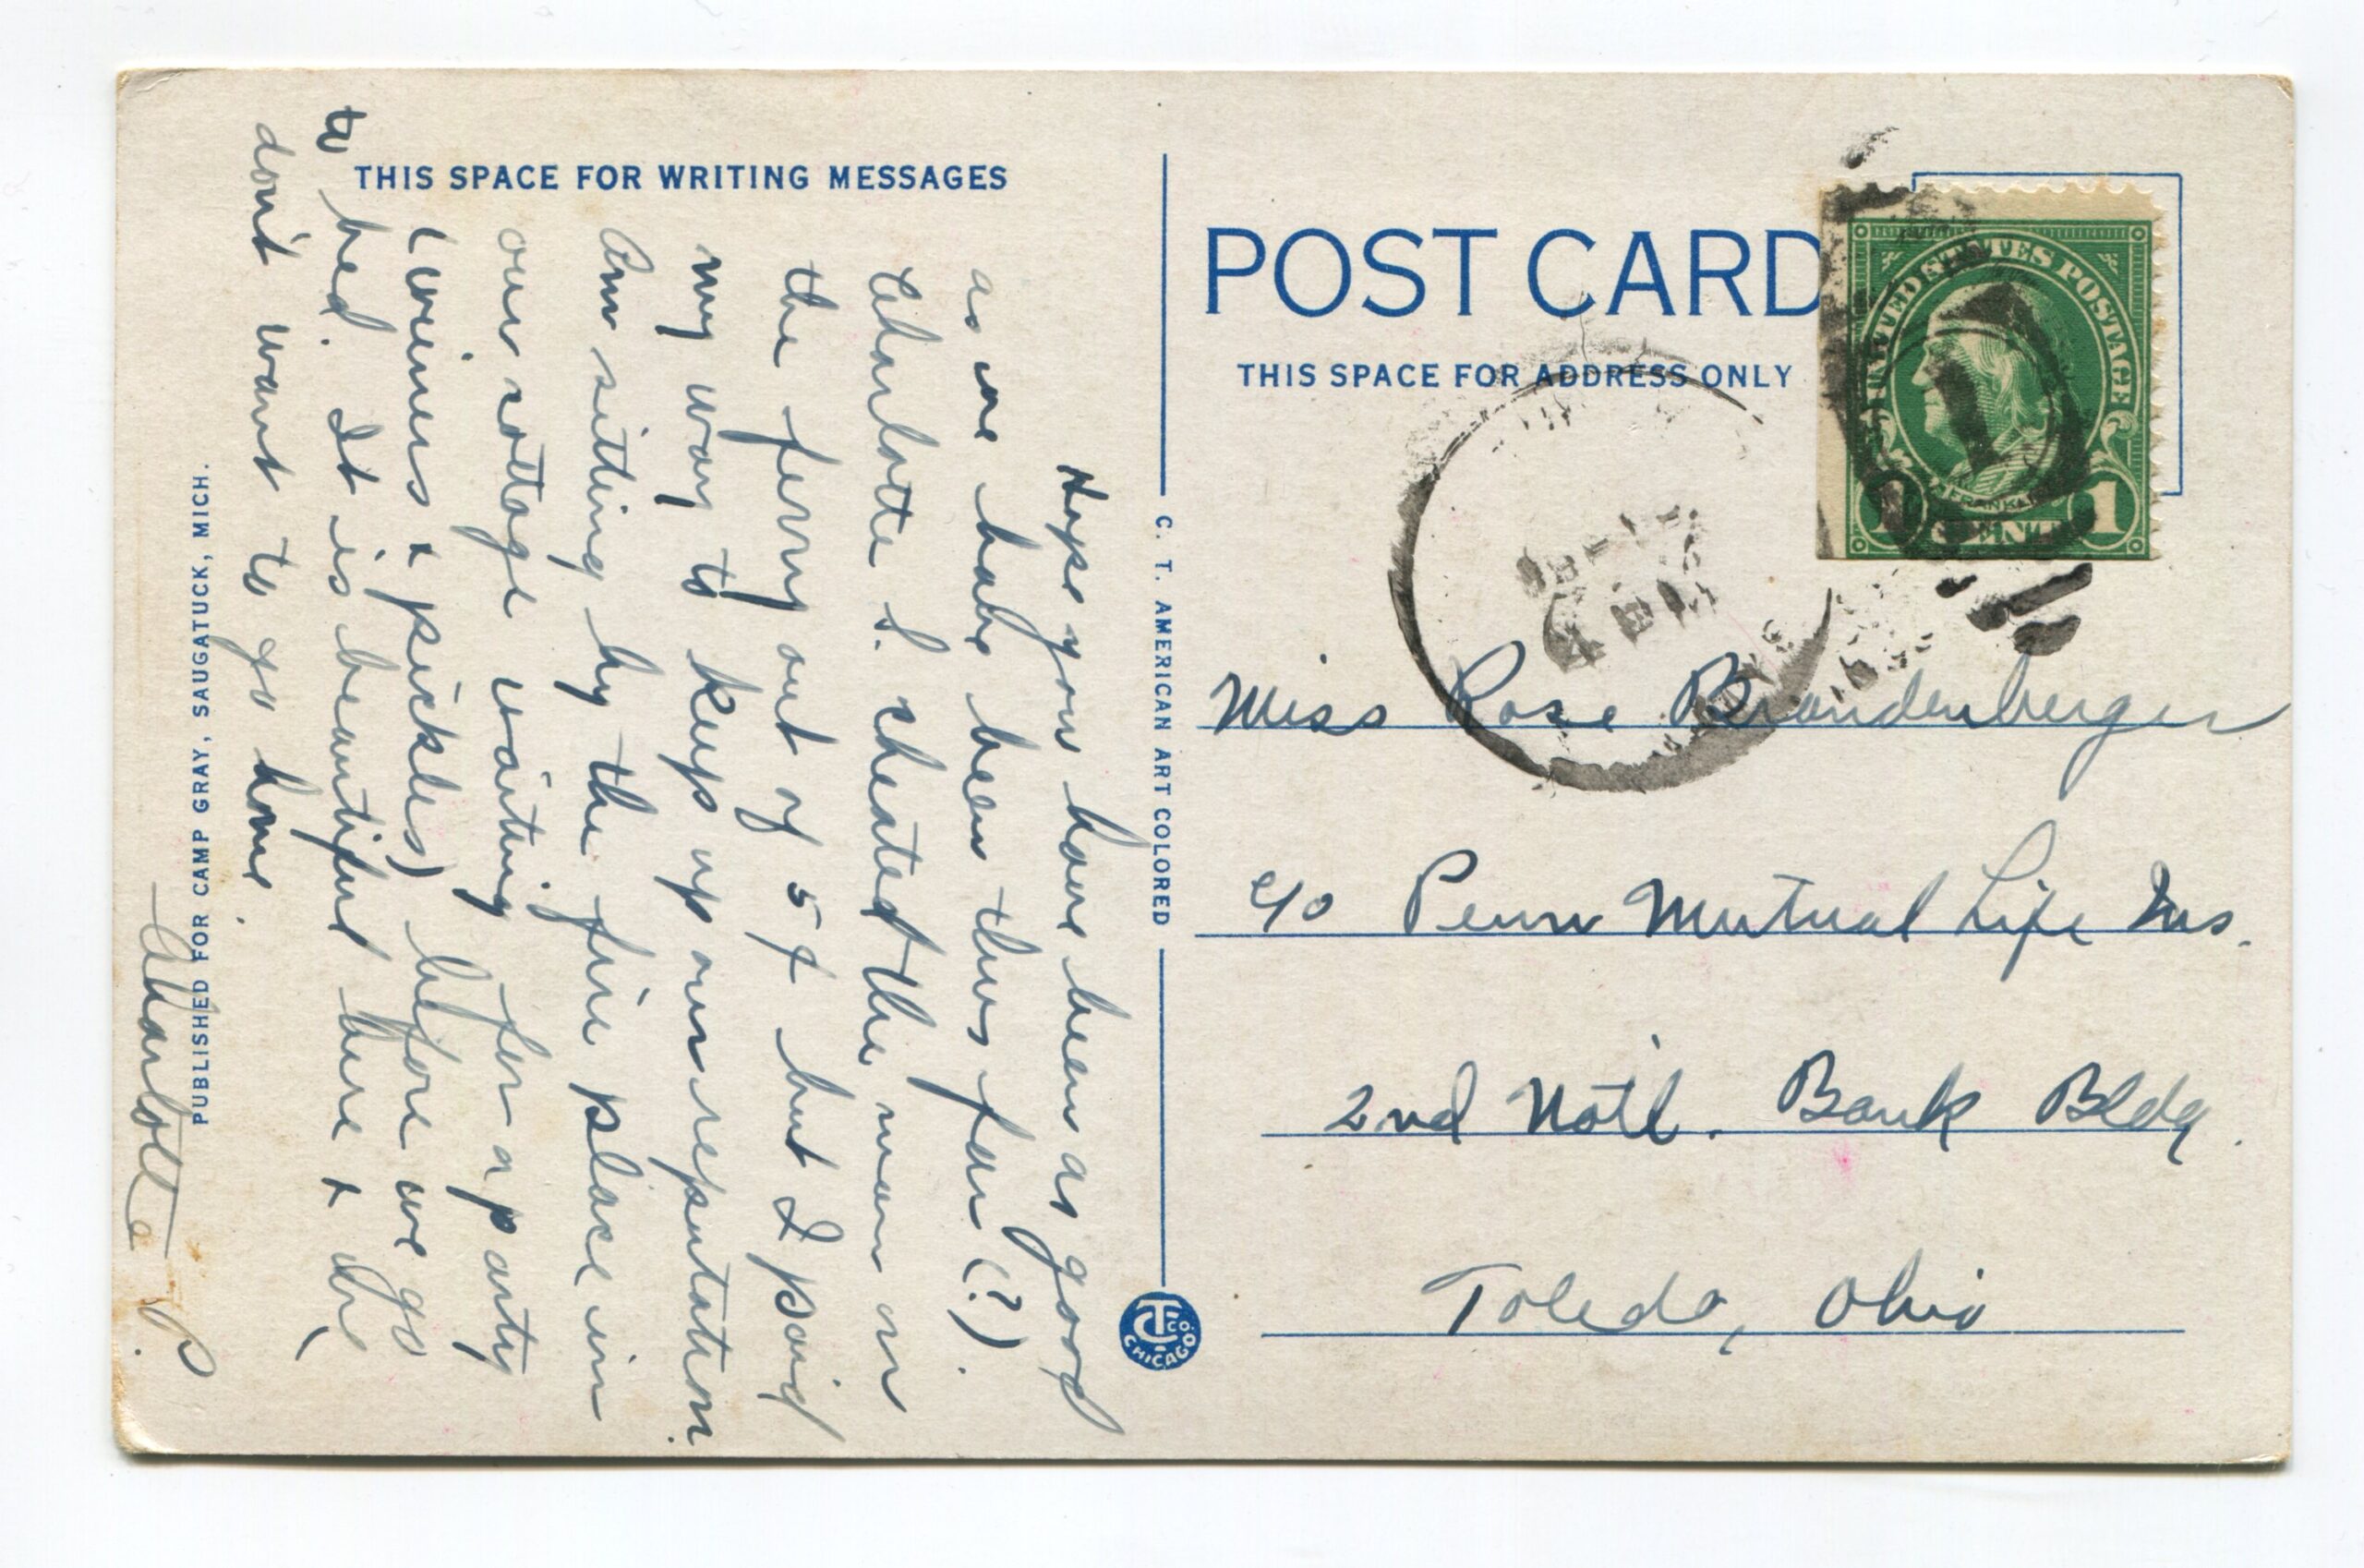 THIS SPACE FOR WRITING MESSAGES
Hope you have been as good
as we have been thus far (?).
Charlotte S. cheated the man on
the ferry out of 5¢ but I paid
my way to keep up our reputation.
Am sitting by the fire place in
our cottage waiting for a party
(wieners & pickles) before we go
to bed. It is beautiful here & do
don't want to go home.
Charlotte P.
PUBLISHED FOR CAMP GRAY, SAUGATUCK, MICH.
C. T. AMERICAN ART COLORED
CTCO. CHICAGO
POST CARD
THIS SPACE FOR ADDRESS ONLY
UNITED STATES POSTAGE
FRANKLIN
1 CENT 1
Miss Rose Brandenberger
c/o Penn Mutual Life Ins.
2nd Natl. Bank Bldg.
Toledo, Ohio